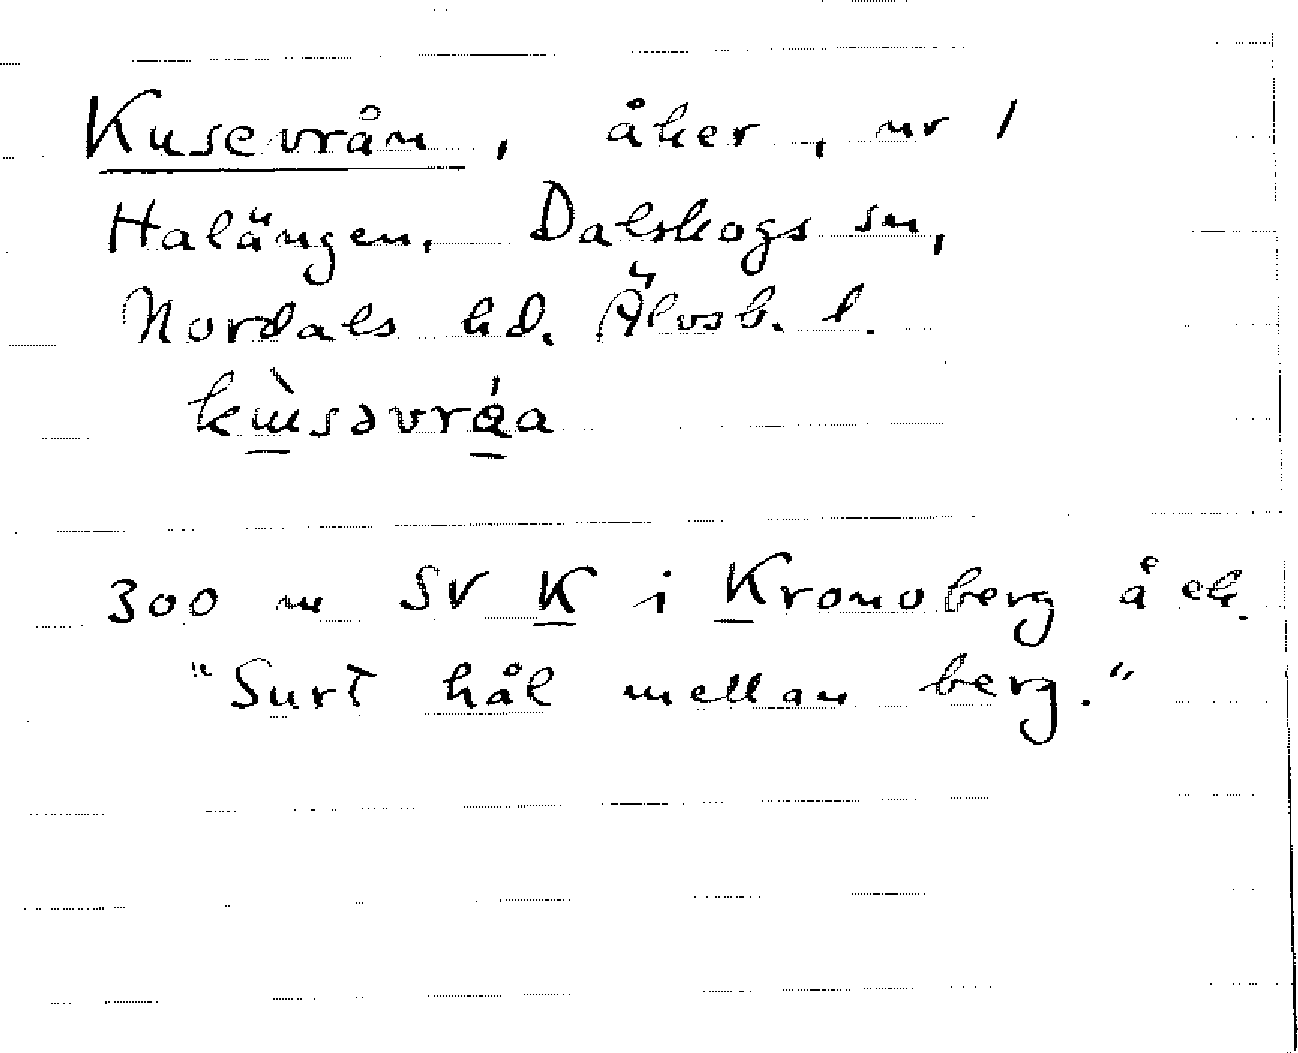 Kusevrån, åker, nr 1
Halängen, Dalskogs sn,
Nordals hd. Älvsb. l.
300 m SV K i Kronoberg å ek.
"Surt hål mellan berg."